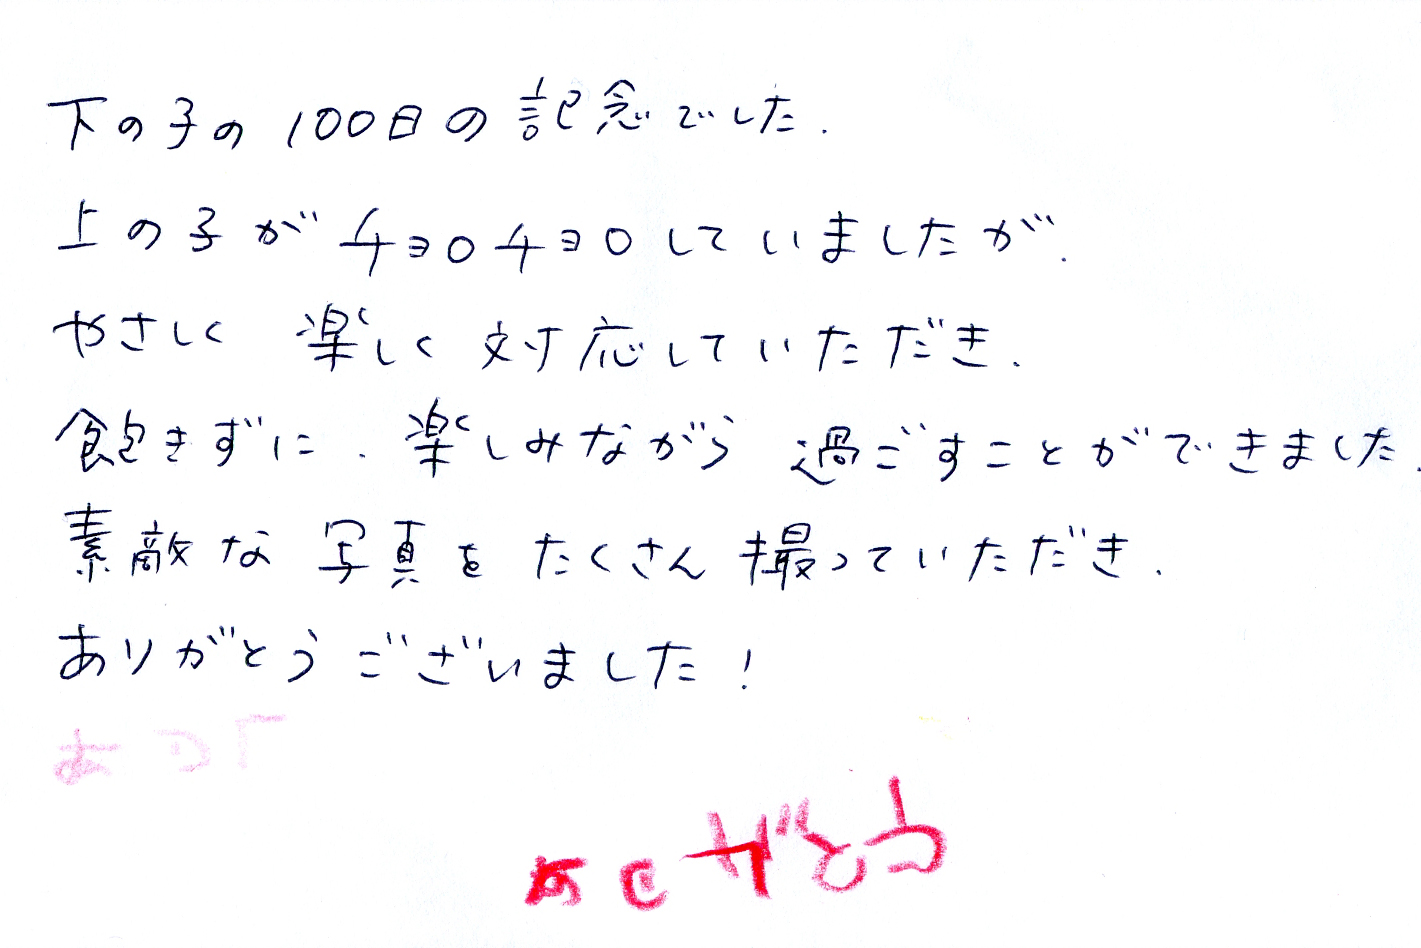 下の子の100日の記念でした.
上の子がチョロチョロしていましたが.
やさしく 楽しく対応していただき.
飽きずに.楽しみながら過ごすことができました.
素敵な写真をたくさん撮っていただき.
ありがとうございました!
ありがとう